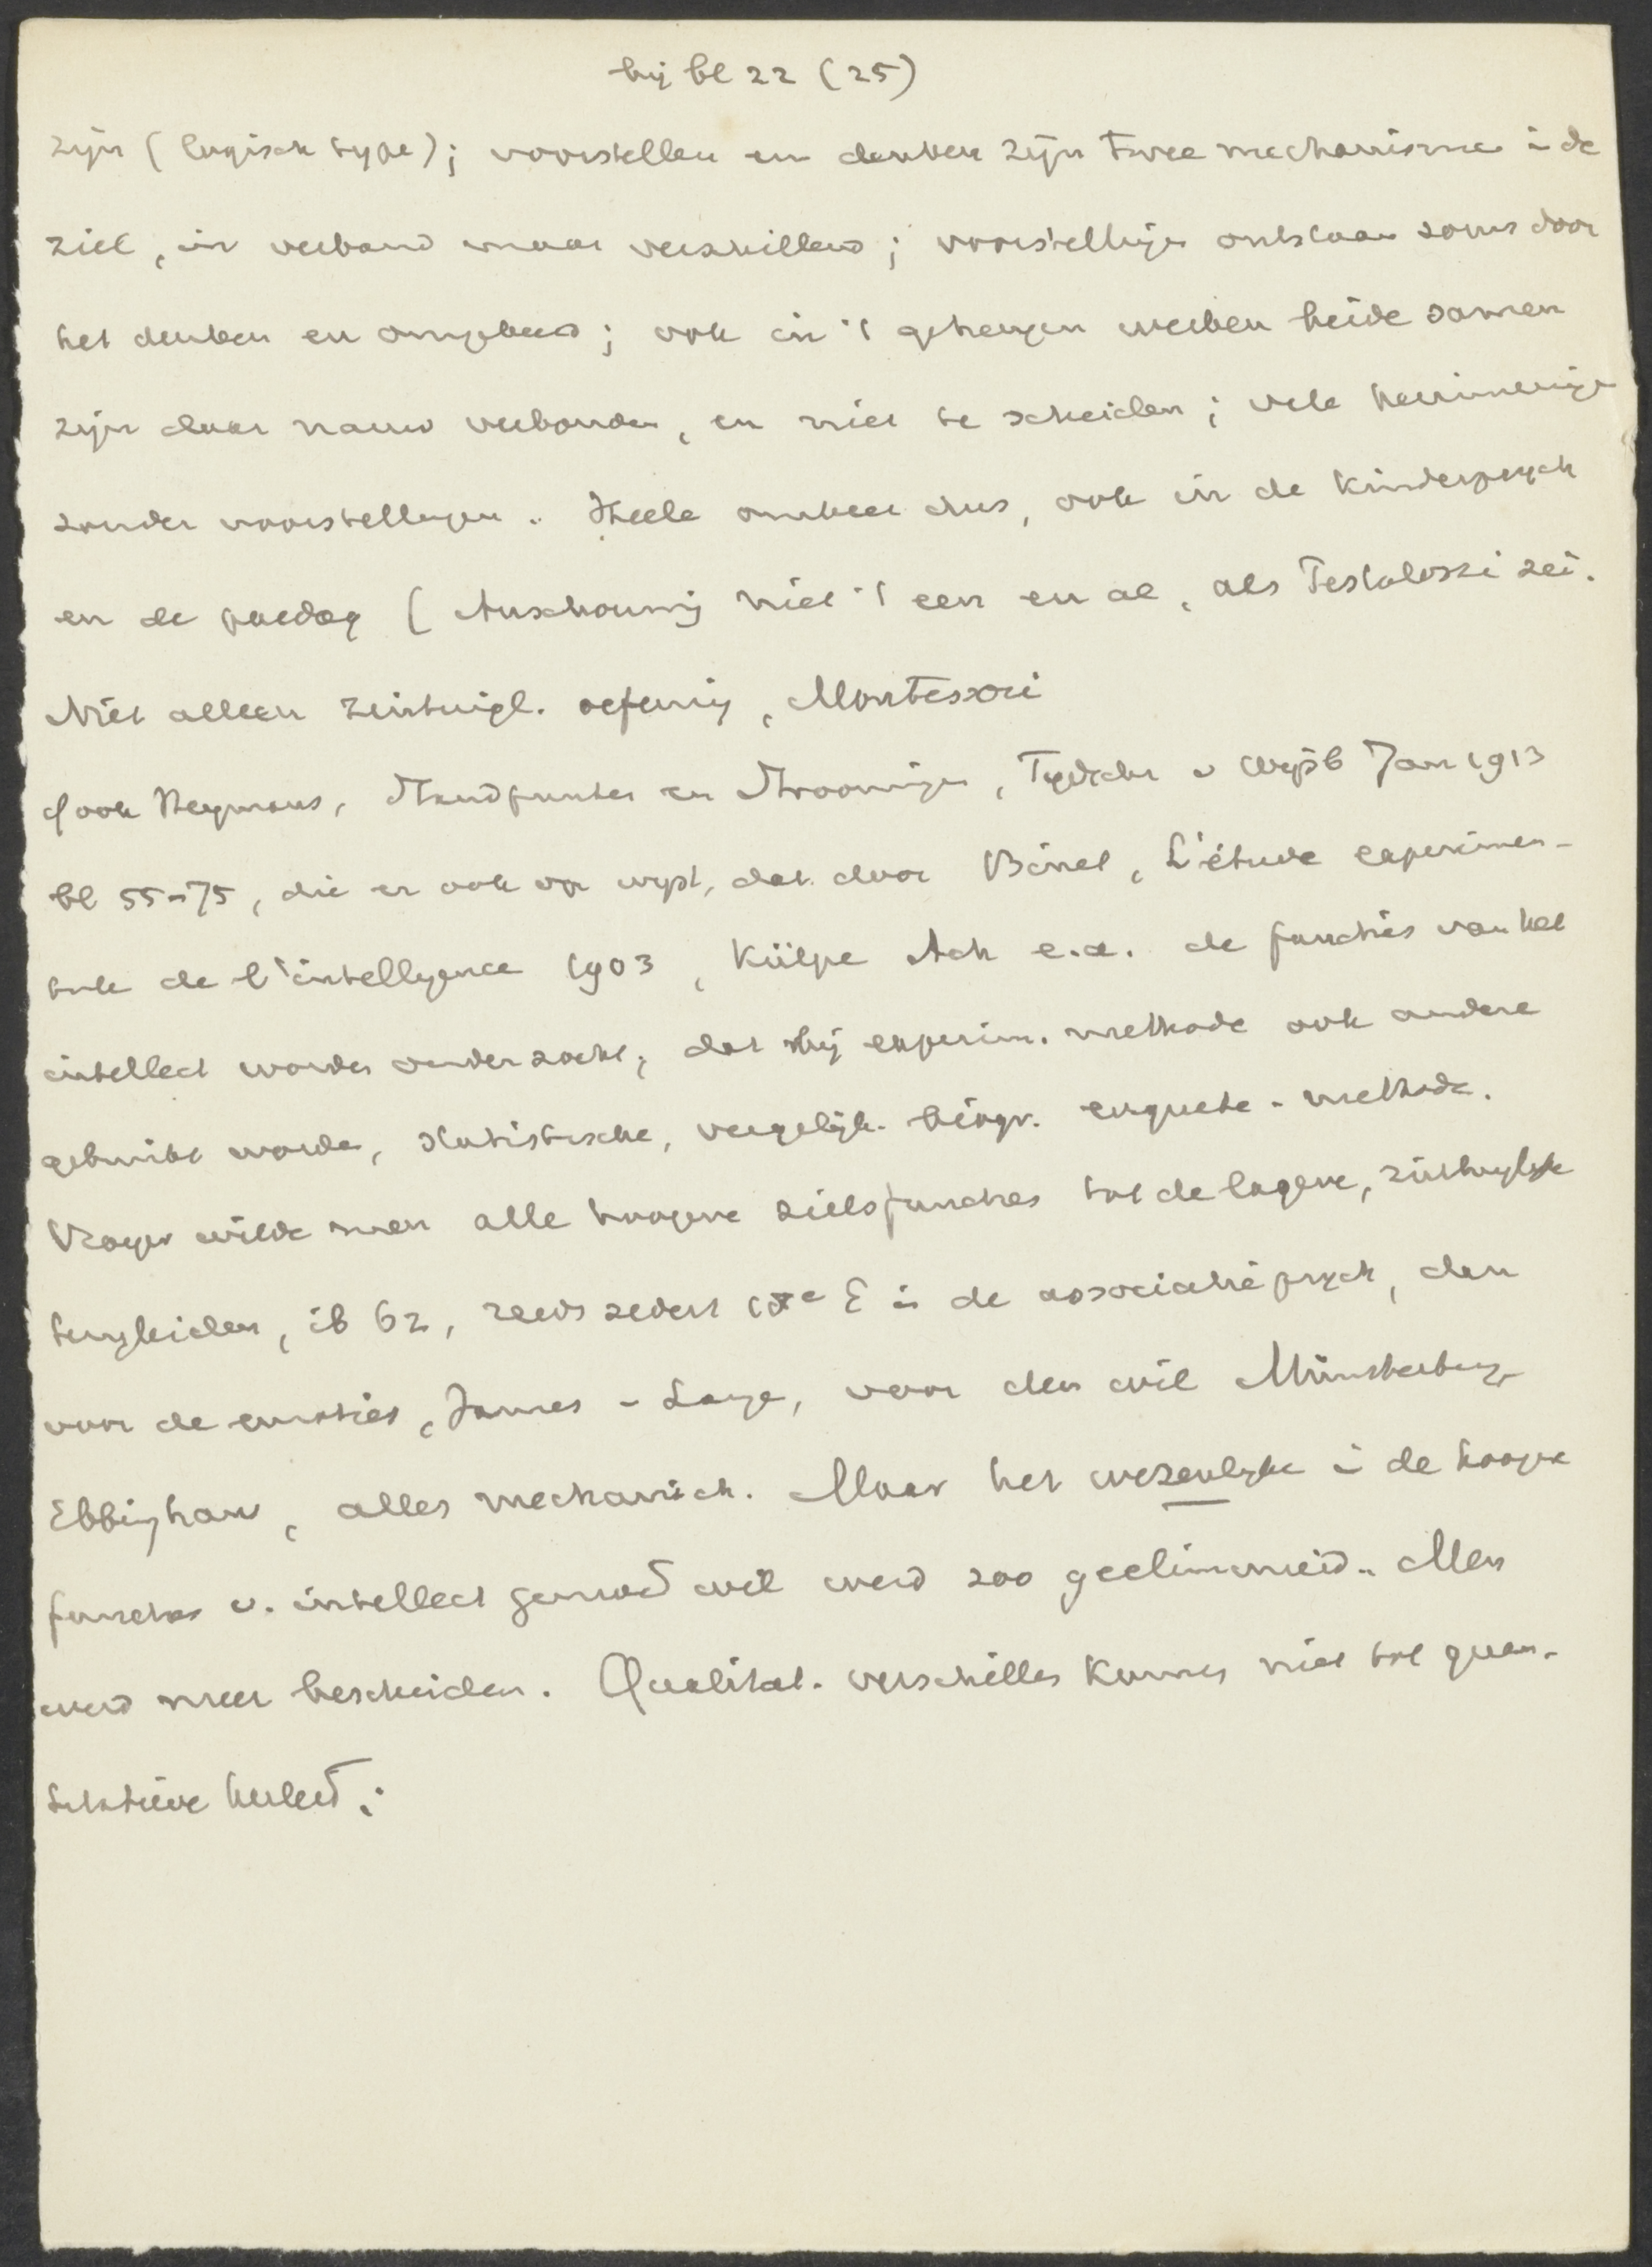 bij bl 22 (25)
zijn (logisch type); voorstellen en denken zijn twee mechanismen in de
ziel, in verband maar verschillend; voorstellingen ontstaan soms door
het denken en omgekeerd; ook in 't geheugen werken beide samen
zijn daar nauw verbonden, en niet te scheiden; vele herinneringen
zonder voorstellingen. Heele omkeer dus, ook in de kinderpsych
en de paedag (Anschauung niet 't een en al, als Pestalozzi zei.
Niet alleen zintuigl. oefening, Montessori
Cf ook Heymans, Standpunten en Stroomingen, Tijdschr v Wijsb Jan 1913
bl 55-75, die er ook op wijst, dat door Binet, L'étude experimen-
tale de l'intelligence 1903, Külpe Ach e.a. de functies van het
intellect worden onderzocht; dat bij experim. methode ook andere
gebruikt worden, statistische, vergelijk. biogr. enquete-methode.
Vroeger wilde men alle hoogere zielsfuncties tot de lagere, zintuiglijke
terugleiden, ib 62, reeds sedert 18e E in de associatiepsych, dan
voor de emoties, James-Lange, voor den wil Münsterberg,
Ebbinghaus, alles mechanisch. Maar het wezenlijke in de hoogere
functies v. intellect gemoed wil werd zoo geelimineerd. Men
werd meer bescheiden. Qualitat. verschillen kunnen niet tot quan-
titatieve herleid;